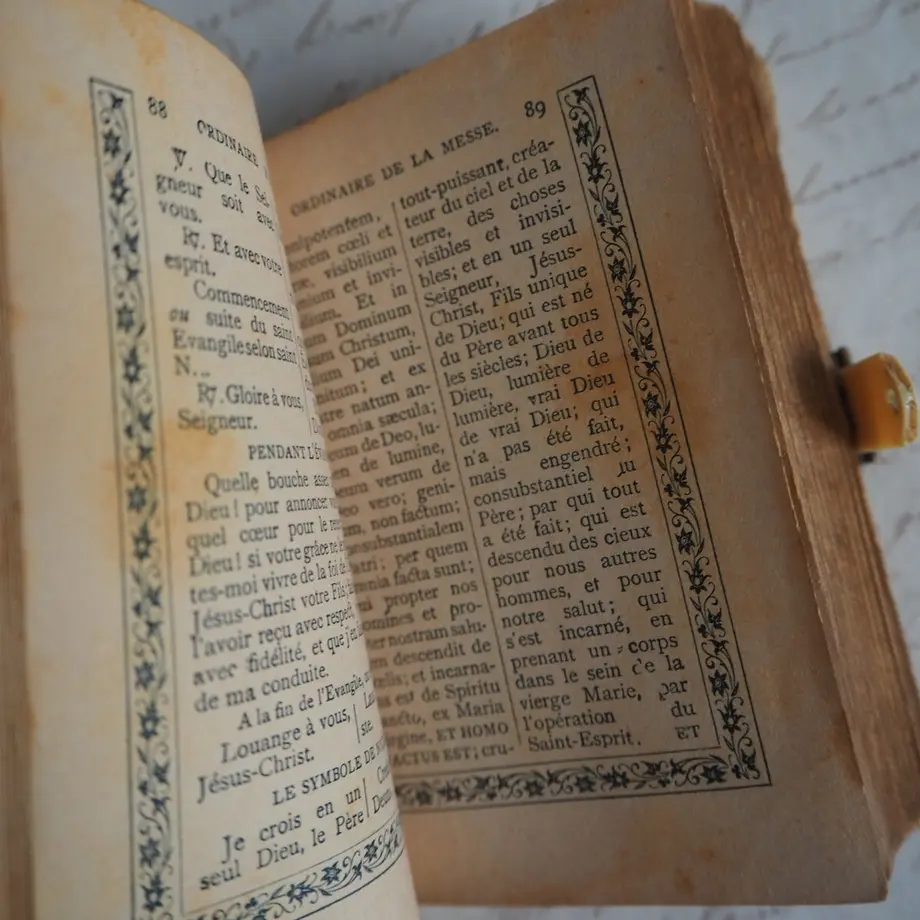 88
ORDINAIRE
℣. Que le Sei-
gneur soit avec
vous.
℟. Et avec votre
esprit.
Commencement
ou suite du saint
Evangile selon saint
N...
℟. Gloire à vous,
Seigneur.
PENDANT L'ÉV
Quelle bouche asse
Dieu! pour annoncer
quel cœur pour le
Dieu! si votre grâce ne
tes-moi vivre de la foi de
Jésus-Christ votre Fils;
l'avoir reçu avec respect,
avec fidélité, et que j'en
de ma conduite.
A la fin de l'Evangile,
Louange à vous,
Jésus-Christ.
LE SYMBOLE DE
Je crois en un
seul Dieu, le Père
89
ORDINAIRE DE LA MESSE.
nipotentem,
orem cœli et
visibilium
nium et invi-
ium. Et in
um Dominum
sum Christum,
um Dei uni-
nitum; et ex
tre natum an-
omnia sæcula;
eum de Deo, lu-
en de lumine,
eum verum de
eo vero; geni-
m, non factum;
nsubstantialem
atri; per quem
nia facta sunt;
ui propter nos
omines et pro-
er nostram salu-
m descendit de
elis; et incarna-
s est de Spiritu
ancto, ex Maria
rgine, ET HOMO
ACTUS EST; cru-
tout-puissant, créa-
teur du ciel et de la
terre, des choses
visibles et invisi-
bles; et en un seul
Seigneur, Jésus-
Christ, Fils unique
de Dieu; qui est né
du Père avant tous
les siècles; Dieu de
Dieu, lumière de
lumière, vrai Dieu
de vrai Dieu; qui
n'a pas été fait,
mais engendré;
consubstantiel du
Père; par qui tout
a été fait; qui est
descendu des cieux
pour nous autres
hommes, et pour
notre salut; qui
s'est incarné, en
prenant un corps
dans le sein de la
vierge Marie, par
l'opération du
Saint-Esprit. ET